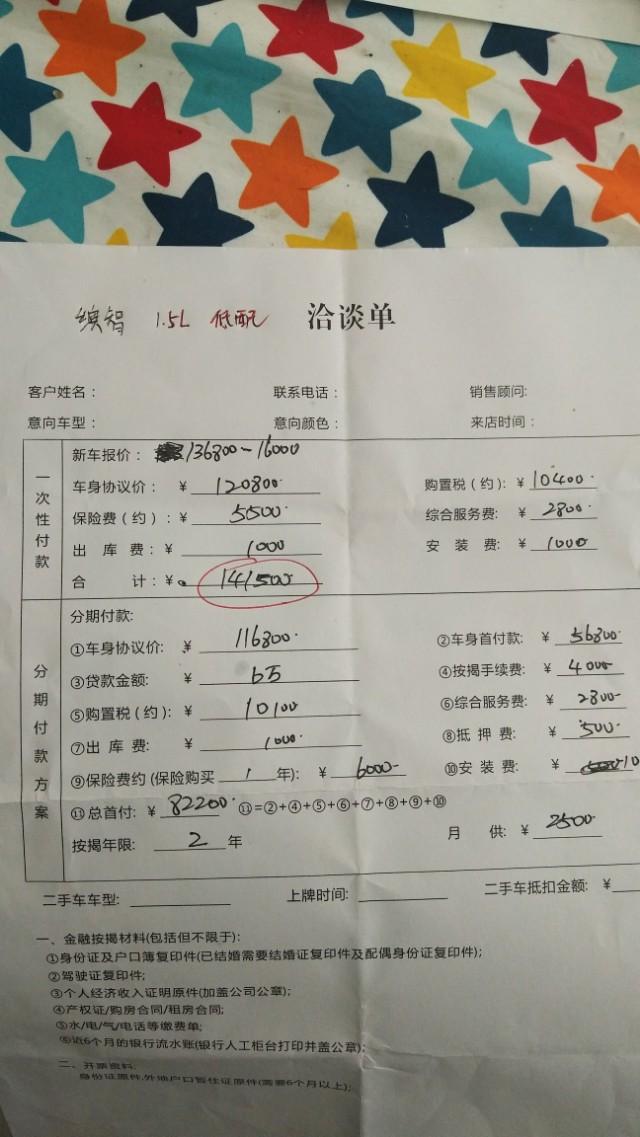 缤智 1.5L 低配 洽谈单
客户姓名： 联系电话： 销售顾问:
意向车型： 意向颜色： 来店时间：
一次性付款
新车报价： 136800-16000
车身协议价： ¥ 120800. 购置税（约）: ¥ 10400.
保险费（约）: ¥ 5500. 综合服务费: ¥ 2800.
出 库 费: ¥ 1000 安 装 费: ¥ 1000.
合 计：¥ 141500.
分期付款方案
分期付款:
①车身协议价: ¥ 116800. ②车身首付款: ¥ 56800.
③贷款金额: ¥ 6万 ④按揭手续费: ¥ 4000.
⑤购置税（约）: ¥ 10100 ⑥综合服务费: ¥ 2800.
⑦出 库 费: ¥ 1000. ⑧抵 押 费: ¥ 500.
⑨保险费约 (保险购买 1 年): ¥ 6000. ⑩安 装 费: ¥ 10
⑪总首付: ¥ 82200. ⑪=②+④+⑤+⑥+⑦+⑧+⑨+⑩
按揭年限: 2 年 月 供: ¥ 2500.
二手车车型: 上牌时间: 二手车抵扣金额: ¥
一、金融按揭材料(包括但不限于):
①身份证及户口簿复印件(已结婚需要结婚证复印件及配偶身份证复印件);
②驾驶证复印件;
③个人经济收入证明原件(加盖公司公章);
④产权证/购房合同/租房合同;
⑤水/电/气/电话等缴费单;
⑥近6个月的银行流水账(银行人工柜台打印并盖公章);
二、开票资料:
身份证原件,外地户口暂住证原件(需要6个月以上);